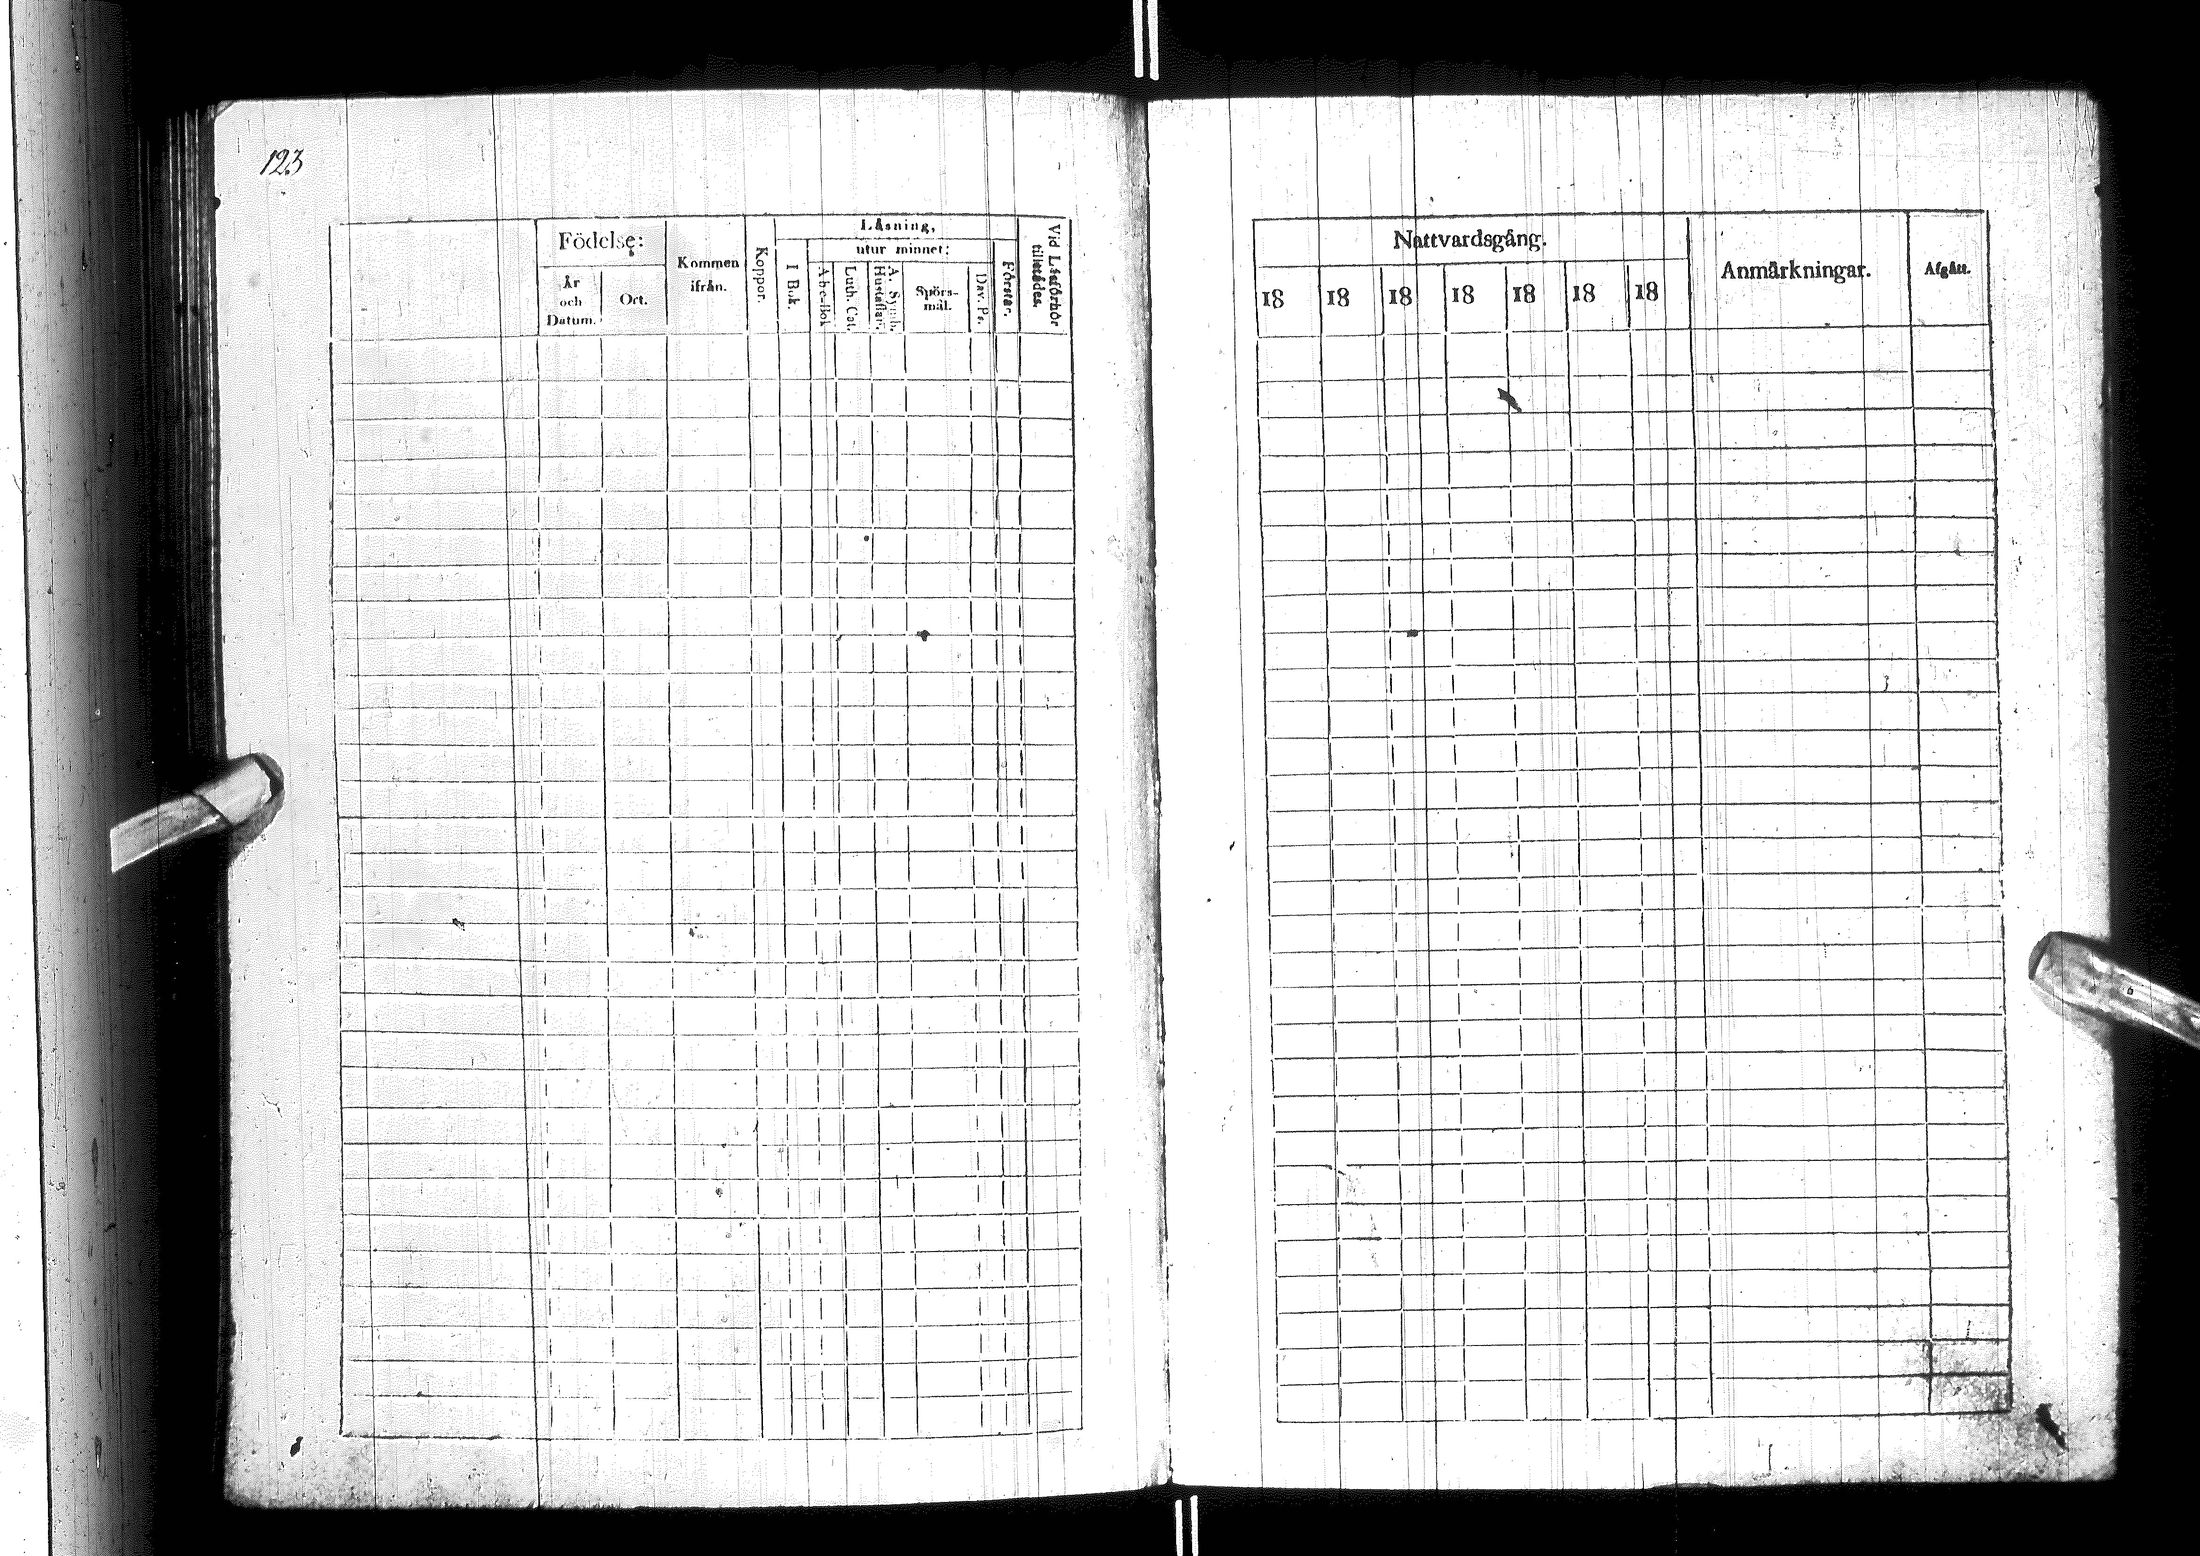 123
Födelse:
År
och
Datum.
Ort.
Kommen
ifrån.
Koppor.
Läsning,
utur minnet:
I Bok.
A-b-c-Bok
Luth. Cat.
A. Symb.
Hustaflan.
Spörs-
mål.
Dav. Ps.
Förstår.
Vid Läsförhör
tillstädes.
Nattvardsgång.
18 18 18 18 18 18 18
Anmärkningar.
Afgått.